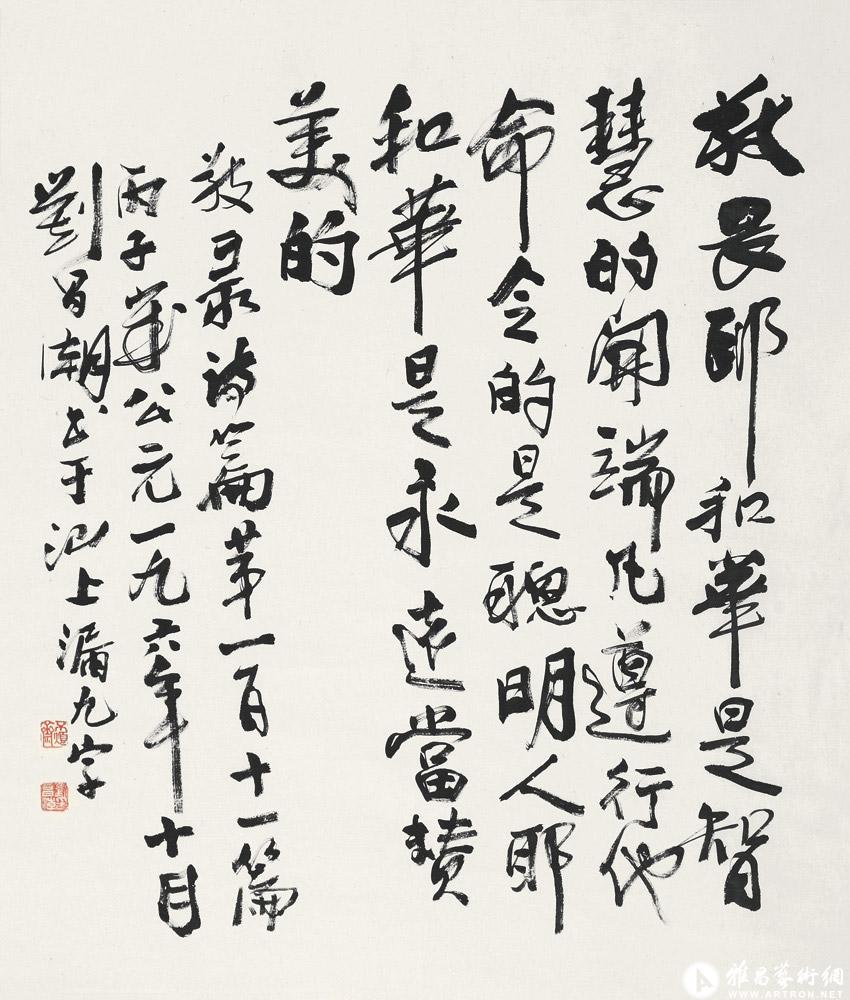 敬畏耶和華是智
慧的開端凡遵行他
命令的是聰明人耶
和華是永遠當贊
美的
敬录詩篇第一百十一篇
丙子歲公元一九六年十月
劉昌潮書于汕上漏九字
雅昌藝術網
WWW.ARTRON.NET